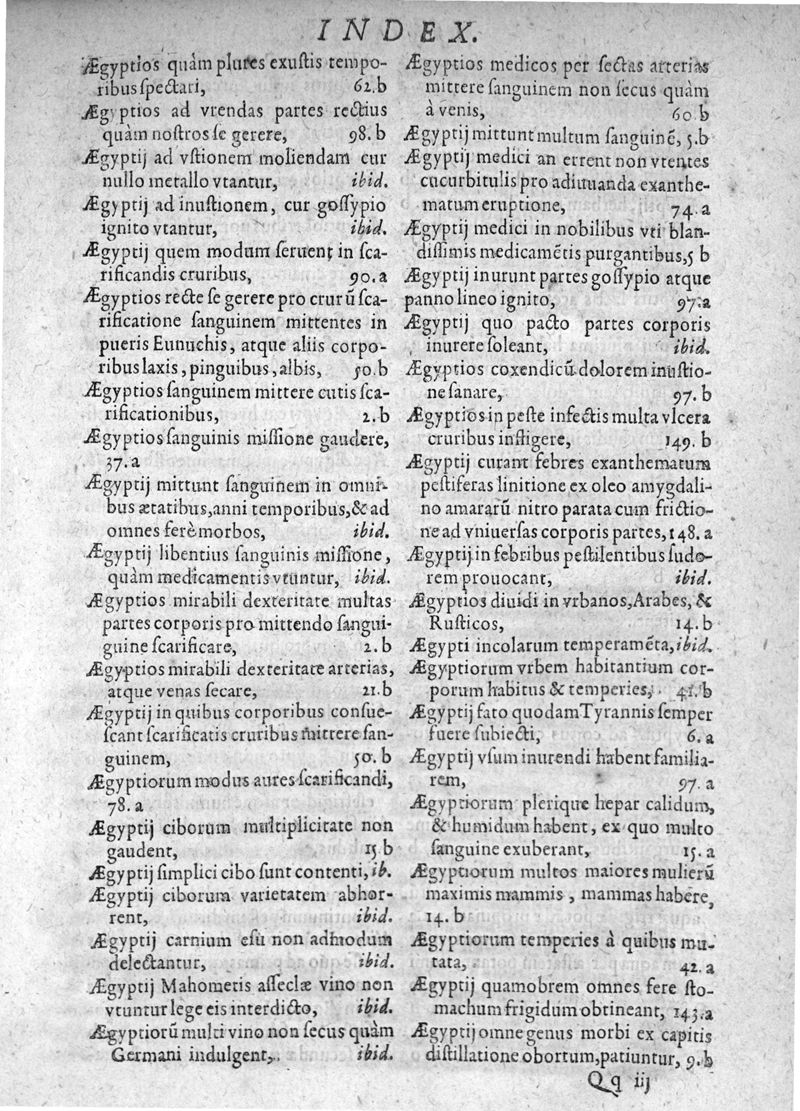 INDEX.
Ægyptios quàm plures exustis tempo-
ribus spectari, 62.b
Ægyptios ad vrendas partes rectius
quàm nostros se gerere, 98.b
Ægyptij ad vstionem moliendam cur
nullo metallo vtantur, ibid.
Ægyptij ad inustionem, cur gossypio
ignito vtantur, ibid.
Ægyptij quem modum seruent in sca-
rificandis cruribus, 90.a
Ægyptios recte se gerere pro crurũ sca-
rificatione sanguinem mittentes in
pueris Eunuchis, atque aliis corpo-
ribus laxis, pinguibus, albis, 50.b
Ægyptios sanguinem mittere cutis sca-
rificationibus, 2.b
Ægyptios sanguinis missione gaudere,
37.a
Ægyptij mittunt sanguinem in omni-
bus ætatibus, anni temporibus, & ad
omnes ferè morbos, ibid.
Ægyptij libentius sanguinis missione,
quàm medicamentis vtuntur, ibid.
Ægyptios mirabili dexteritate multas
partes corporis pro mittendo sangui-
guine scarificare, 2.b
Ægyptios mirabili dexteritate arterias,
atque venas secare, 21.b
Ægyptij in quibus corporibus consue-
scant scarificatis cruribus mittere san-
guinem, 50.b
Ægyptiorum modus aures scarificandi,
78.a
Ægyptij ciborum multiplicitate non
gaudent, 15 b
Ægyptij simplici cibo sunt contenti, ib.
Ægyptij ciborum varietatem abhor-
rent, ibid.
Ægyptij carnium esù non admodum
delectantur, ibid.
Ægyptij Mahometis asseclæ vino non
vtuntur lege eis interdicto, ibid.
Ægyptiorũ multi vino non secus quàm
Germani indulgent, ibid.
Ægyptios medicos per sectas arterias
mittere sanguinem non secus quàm
à venis, 60.b
Ægyptij mittunt multum sanguinẽ, 5.b
Ægyptij medici an errent non vtentes
cucurbitulis pro adiuuanda exanthe-
matum eruptione, 74.a
Ægyptij medici in nobilibus vti blan-
dissimis medicamẽtis purgantibus, 5 b
Ægyptij inurunt partes gossypio atque
panno lineo ignito, 97.a
Ægyptij quo pacto partes corporis
inurere soleant, ibid.
Ægyptios coxendicũ dolorem inustio-
ne sanare, 97. b
Ægyptios in peste infectis multa vlcera
cruribus infligere, 149. b
Ægyptij curant febres exanthematum
pestiferas linitione ex oleo amygdali-
no amararũ nitro parata cum frictio-
ne ad vniuersas corporis partes, 148. a
Ægyptij in febribus pestilentibus sudo-
rem prouocant, ibid.
Ægyptios diuidi in vrbanos, Arabes, &
Rusticos, 14. b
Ægypti incolarum temperamẽta, ibid.
Ægyptiorum vrbem habitantium cor-
porum habitus & temperies, 41. b
Ægyptij fato quodam Tyrannis semper
fuere subiecti, 6. a
Ægyptij vsum inurendi habent familia-
rem, 97. a
Ægyptiorum plerique hepar calidum,
& humidum habent, ex quo multo
sanguine exuberant, 15. a
Ægyptiorum multos maiores mulierũ
maximis mammis, mammas habere,
14. b
Ægyptiorum temperies à quibus mu-
tata, 42. a
Ægyptij quamobrem omnes fere sto-
machum frigidum obtineant, 143.a
Ægyptij omne genus morbi ex capitis
distillatione obortum, patiuntur, 9. b
Qq iij